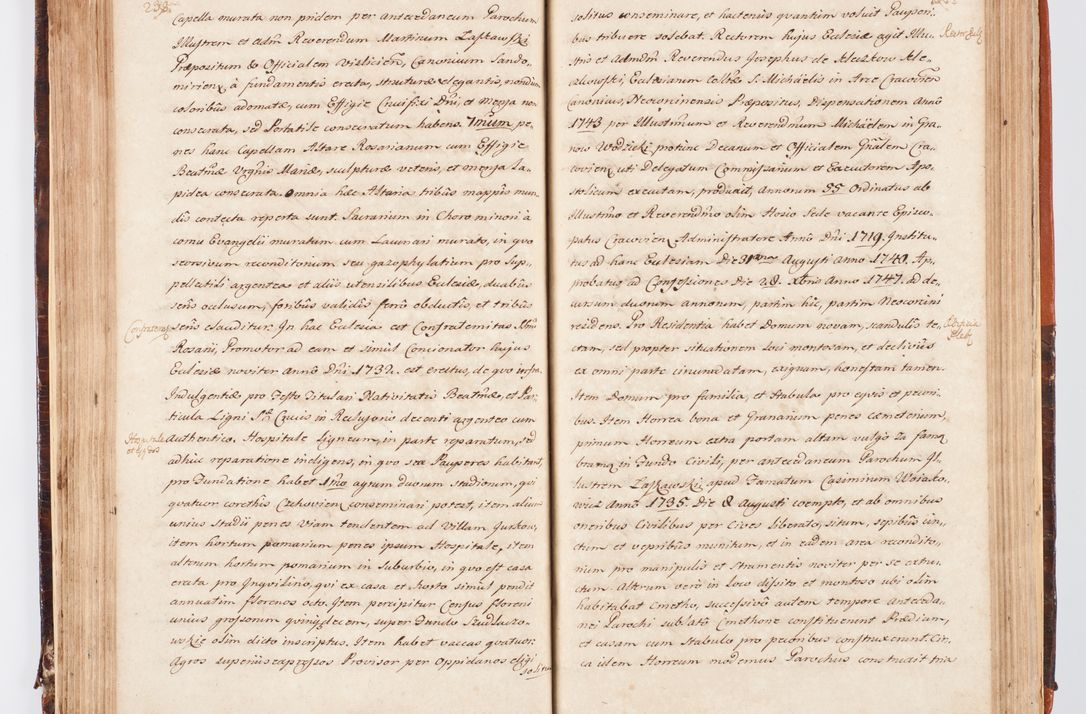 Capella murata non pridem per antecedaneum Parochum
Illustrem et Adm Reverendum Martinum Łaskawski
Præpositum & Officialem Vislicien, Canonicum Sando-
mirien, à fundamentis erecta, structuræ elegantis, nondum
coloribus adornatæ, cum Effigie Crucifixi Dni, et mensa non
consecrata, sed Portatile consecratum habens. 7mum pe-
nes hanc Capellam Altare Rosarianum cum Effigie
Beatmæ Vrgnis Mariæ, sculpturæ veteris, et mensa la-
pidea consecrata. Omnia hæc Altaria tribus mappis mun-
dis contecta reperta sunt. Sacrarium in Choro minori à
cornu Evangelii muratum cum Lacunari murato, in quo
seorsivum reconditorium seu gazophylatium pro Sup-
pellectili argentea et aliis utensilibus Ecclesiæ, duabus
seris occlusum, foribus validis ferro obductis, et tribus
Confraternitas
seris clauditur. In hac Ecclesia est Confraternitas
Rosarii, Promotor ad eam et simul Concionator hujus
Ecclesiæ noviter Anno Dni 1732. est erectus, de quo infra.
Indulgentiæ pro Festo Titulari Nativitatis Beatmæ, et Par-
ticula Ligni Stæ Crucis in Reliquiario decenti argenteo cum
Hospitale
Authentica. Hospitale ligneum, in parte reparatum, sed
adhuc reparatione indigens, in quo sex Pauperes habitant,
pro Fundatione habet 1mo agrum duorum stadiorum, qui
quatuor corethis Czchovien conseminari potest, item alium
unius Stadii penes viam tendentem ad Villam Gurkow,
item hortum pomarium penes ipsum Hospitale, item
alterum hortum pomarium in Suburbio, in quo est casa
erecta pro Inquilino, qui ex casa et horto simul pendit
annuatim florenos octo. Item percipitur Census floreni
unius grossorum quindecim, super Fundo
olim dicto inscriptus. Item habet vaccas quatuor.
Agros superius expressos Provisor per Oppidanos eligi
solitus
solitus conseminare, et hactenus quantum voluit Pauperi-
bus tribuere solebat. Rectorem hujus Ecclesiæ agit Illu-
stris et Admdm Reverendus Josephus de
Ecclesiarum Colltæ S. Michaëlis in Arce Cracovien
Canonicus, Præpositus, Dispensationem Anno
1743 per Illustrmum et Reverendmum Michaëlem in Gra-
now Wodzicki, protunc Decanum et Officialem Gnalem Cra-
covien, uti Delegatum Commissarium et Executorem Apo-
stolicum executam, produxit, Annorum 55 Ordinatus ab
Illustrmo et Reverendmo olim Hosio Sede vacante Episco-
patus Cracovien Administratore Anno Dni 1719. Institu-
tus ad hanc Ecclesiam Die Augusti Anno 1740. Ap-
probatus ad Confessiones Die 28. Xbris Anno 1747. ad de-
cursum duorum annorum, partim hic, partim
residens. Pro Residentia habet Domum novam, scandulis te-
ctam, sed propter situationem loci montosam, et declivüs
ex omni parte circumdatam, exiguam, honestam tamen.
Item Domum pro familia, et stabula pro equis et pecori-
bus. Item Horrea bona et Granarium penes cæmeterium,
primum Horreum extra portam altam vulgo Za
bramą in Fundo Civili, per antecedaneum Parochum Il-
lustrem Łaskawski apud Famatum Casimirum
Anno 1735. Die 8 Augusti coempto, et ab omnibus
oneribus Civilibus per Cives liberato, situm, sepibus cin-
ctum et vepribus munitum, et in eadem area recondito-
rium pro manipulis et stramentis noviter per se extru-
ctum. Alterum verò in loco dissito et montoso ubi olim
habitabat Cmetho, successivo autem tempore anteceda-
nei Parochi sublato Cmethone constituerunt Prædium,
et casam cum stabulo pro pecoribus construxerunt. Cir-
ca idem Horreum modernus Parochus construxit tria